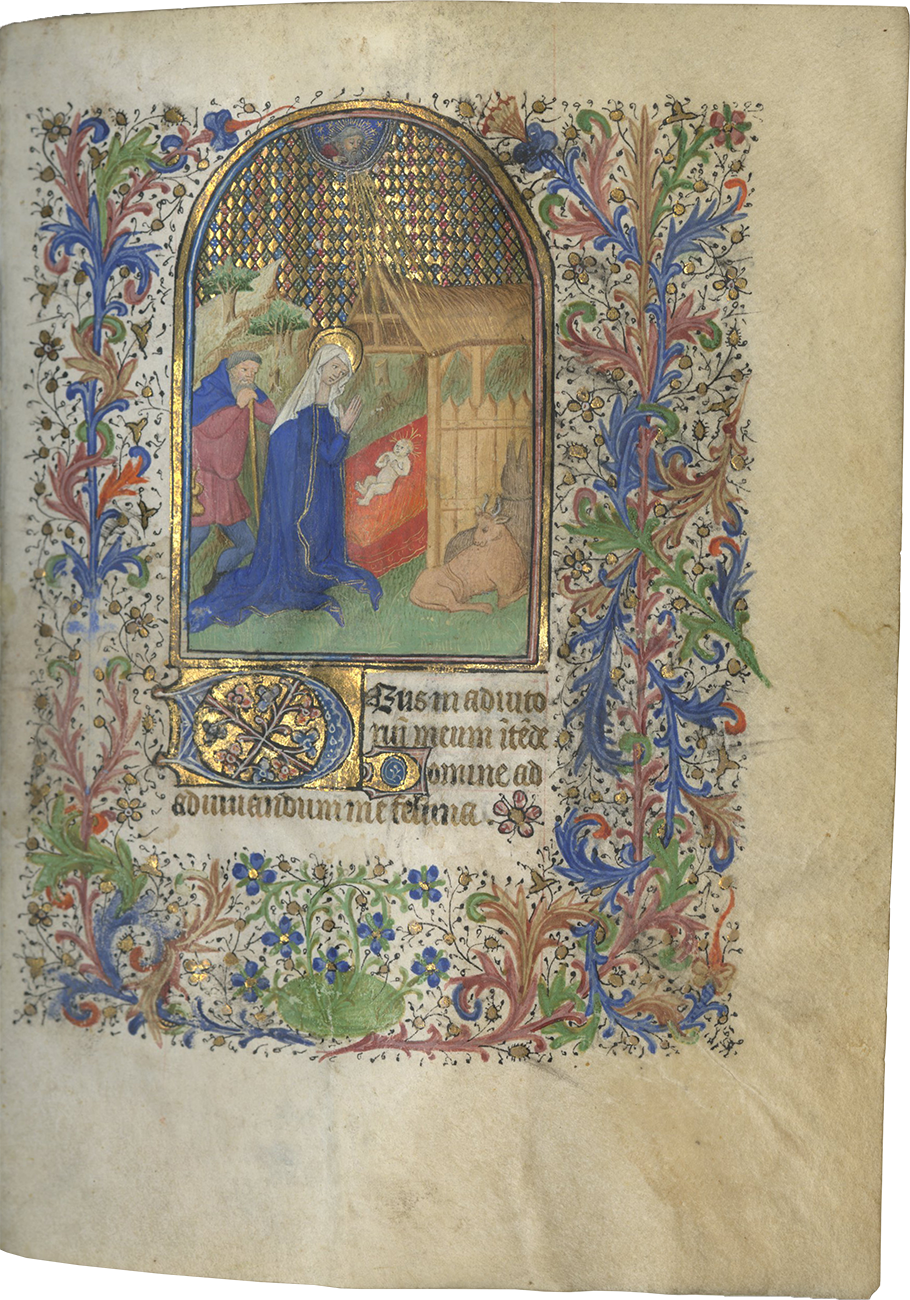 DEus in adiuto
riū meum ītēde
Domine ad
adiuuandum me festina